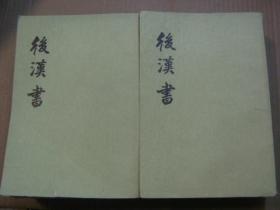 後漢書
後漢書